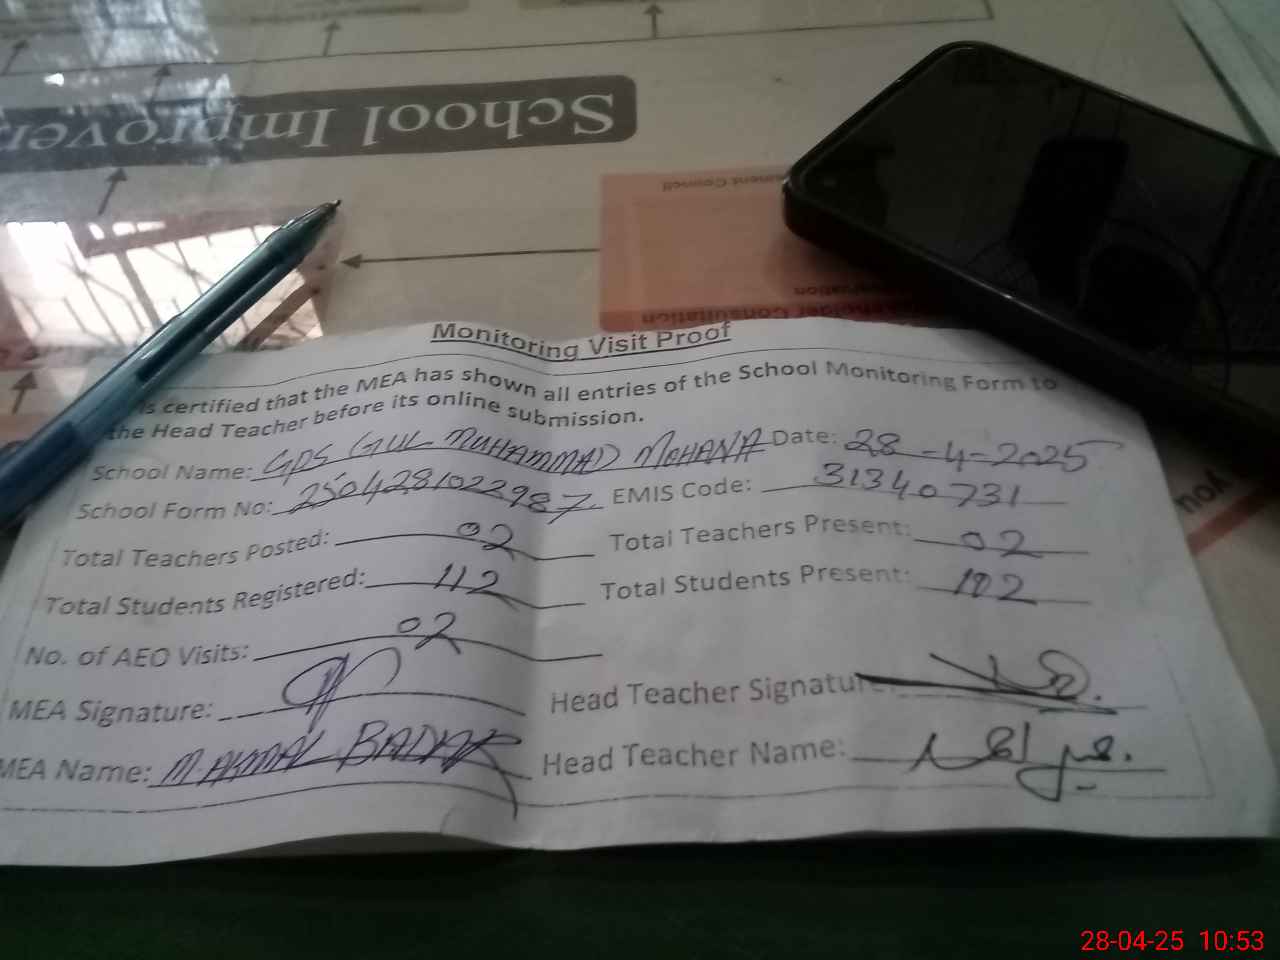 School Improvem
ment Council
ervation
keholder Consultation
you
Monitoring Visit Proof
is certified that the MEA has shown all entries of the School Monitoring Form to
the Head Teacher before its online submission.
School Name: GPS GUL MUHAMMAD MOHANA Date: 28-4-2025
School Form No: 2504281022987 EMIS Code: 31340731
Total Teachers Posted: 02 Total Teachers Present: 02
Total Students Registered: 112 Total Students Present: 102
No. of AEO Visits: 02
MEA Signature: Head Teacher Signature:
MEA Name: M AKMAL BADAR Head Teacher Name:
28-04-25 10:53